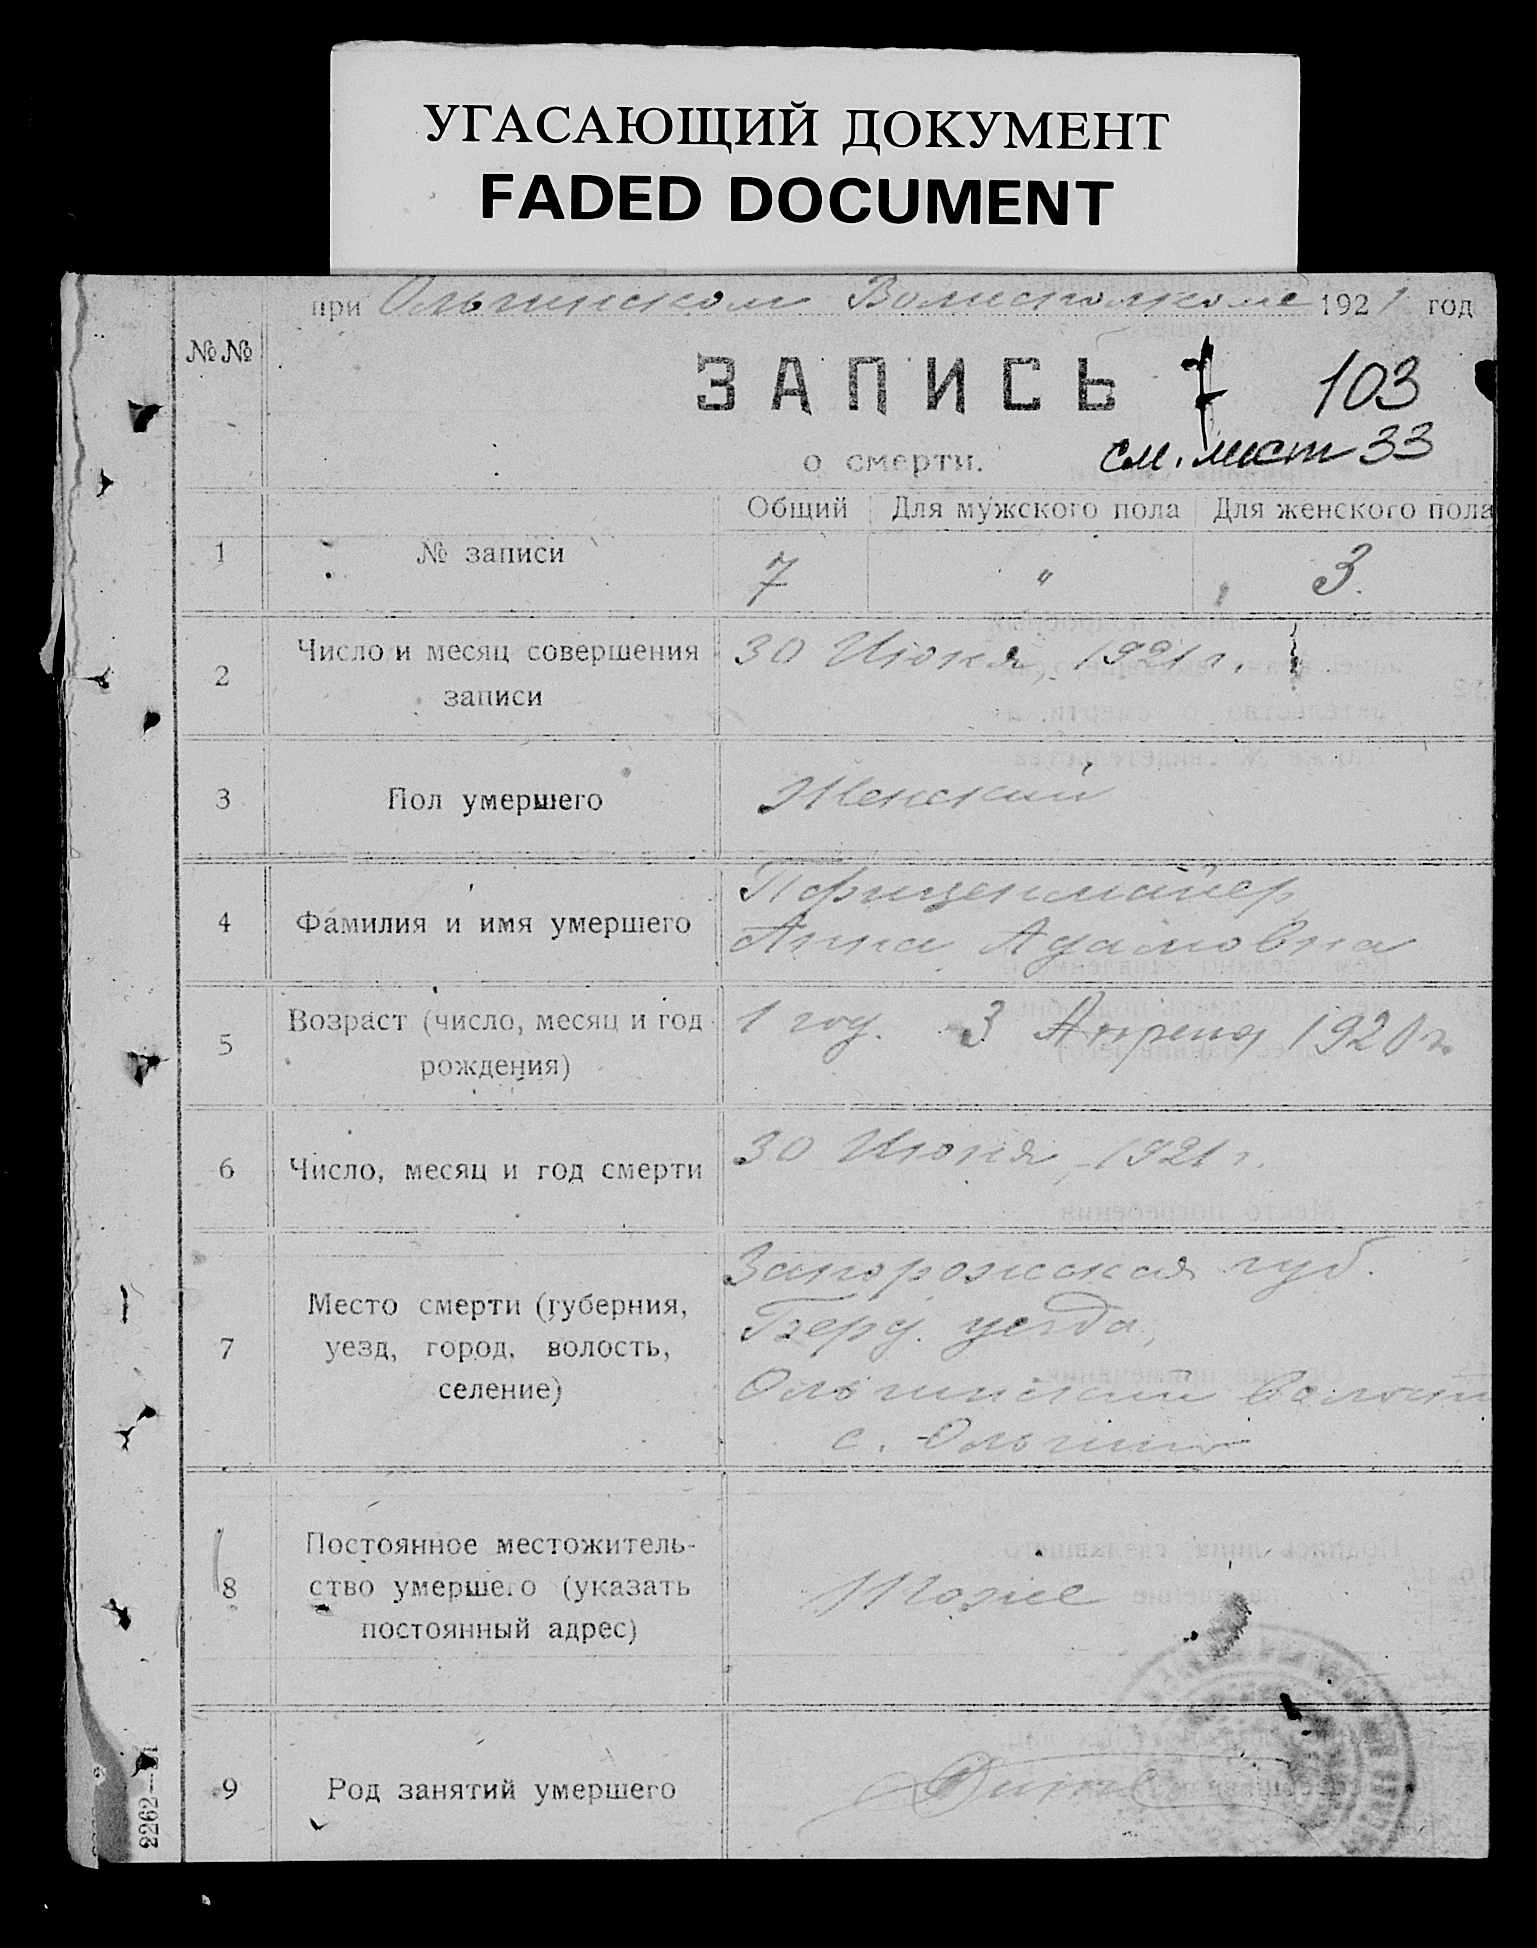 УГАСАЮЩИЙ ДОКУМЕНТ
FADED DOCUMENT
при Ольгинском Волисполкоме 1921 год
№№
ЗАПИСЬ 7 103
о смерти. см. лист 33
Общий Для мужского пола Для женского пола
1 № записи 7 " 3.
2 Число и месяц совершения записи 30 Июня, 1921 г.
3 Пол умершего Женский
4 Фамилия и имя умершего Пфценмайер
Анна Адамовна
5 Возраст (число, месяц и год рождения) 1 год. 3 Апреля 1920 г.
6 Число, месяц и год смерти 30 Июня 1921 г.
7 Место смерти (губерния, уезд, город, волость, селение) Запорожская губ.
Берд. уезда,
Ольгинской волости
с. Ольгино
8 Постоянное местожительство умершего (указать постоянный адрес) Тоже
9 Род занятий умершего
2262—21